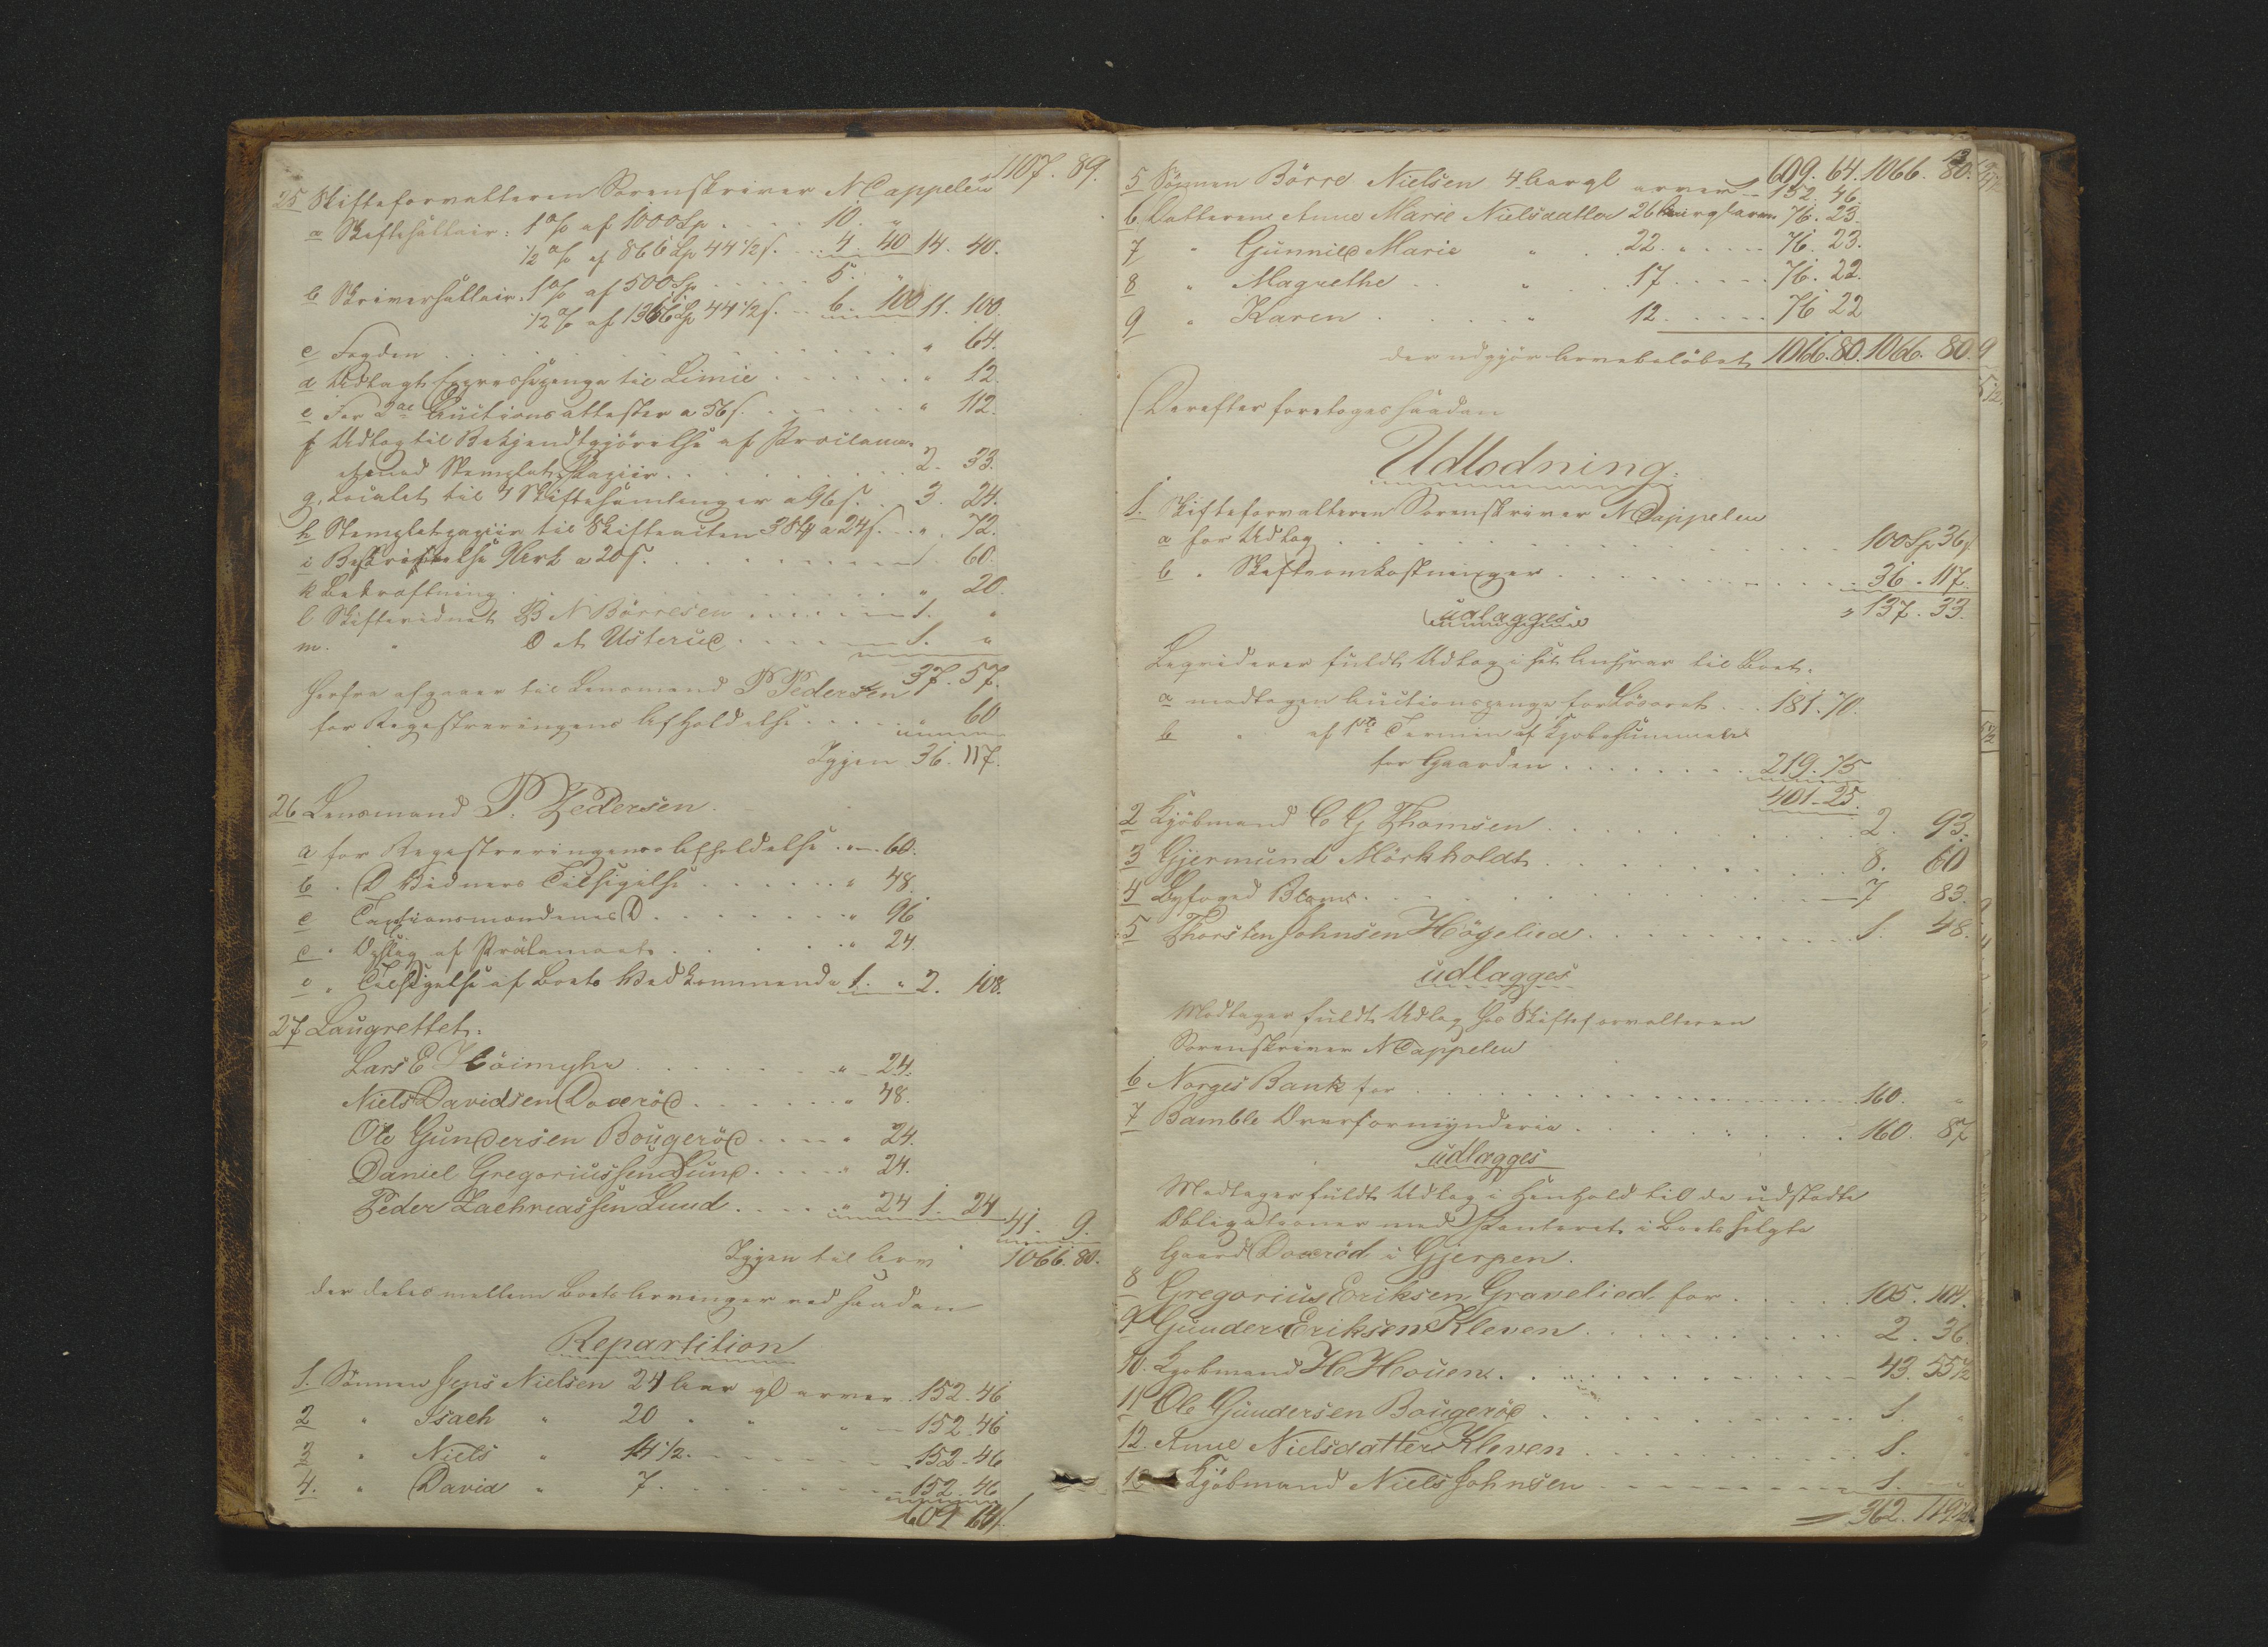 1107. 89.
25 Skifteforvalteren Sorenskriver N Cappelen
a Skiftesallair: 1 % af 1000 Sp . . . . 10. "
1/2 % af 866 Sp 44 1/2 s. . . 4. 40 14. 40.
b Skriversallair. 1 % af 500 Sp . . . . . 5. "
1/2 % af 1366 Sp 44 1/2 s. . . 6. 100 11. 100.
c Fogden . . . . . . " 64.
d Udlagt Expressepenge til Limie . . . . . . " 12.
e For 2de Auctionsattester a 56 s. . . . . . " 112.
f Udlæg til Bekjendtgjørelse af Proclama
 Stemplet Papiir . . . . . . 2. 33.
g. Localet til 4 Skiftesamlinger a 96 s. . . 3. 24.
h Stempletpapiir til Skifteacten 3 Stk a 24 s. . . ". 72.
i Beskrivelse 9 Ark a 20 s. . . . . . 1. 60.
k Bekræftning . . . . . . " 20.
l Skiftevidnet B N Börresen . . . . . 1. "
m. " O et Usterud . . . . . 1. "
37. 57.
Herfra afgaaer til Lensmand P Pedersen
for Registreringens Afholdelse . . . . . " 60
Igjen 36. 117.
26 Lensmand P. Pedersen.
a for Registreringens Afholdelse . " . 60.
b . D Vidners Tilsigelse . . . . . . " 48.
c Taxtionsmændenes D . . . . . . . " 96
d " Opslag af Proclamaet . . . . . . " 24.
e " Tilsigelse af Boets Vedkommende 1. " 2. 108.
27 Laugrettet.
Lars E Höimyhr . . . . . . " 24.
Niels Davidsen Doxröd . . . . . . " 48.
Ole Gundersen Bougeröd . . . . " 24.
Daniel Gregoriussen Lund . . . . . " 24.
Peder Zachriassen Lund . . . . . " 24 1. 24 41. 9.
Igjen til Arv 1066. 80.
der deles mellem Boets Arvinger ved saadan
Repartition
1. Sönnen Jens Nielsen 24 Aar gl arver . 152. 46
2 " Isach " 20 " " " 152. 46
3 " Niels " 14 1/2 . . . . . . 152. 46
4. " David " 7 . . . . . . 152. 46
609 64.
13
609. 64. 1066. 80.
5 Sönnen Börre Nielsen 4 Aar gl arver 152. 46.
6 Datteren Anne Marie Nielsdatter 26 Aar gl arver 76. 23.
7 " Gunnild Marie " . . 22. " . . . . 76. 23.
8 " Magrethe . . " . . 17 . . . . . 76. 22.
9 " Karen . . . . " 12 . . . . . 76 22
der udgjör Arvebelöbet 1066. 80. 1066. 80
Derefter foretoges saadan
Udlodning.
1. Skifteforvalteren Sorenskriver N Cappelen
a for Udlæg . . . . . . 100 Sp 36 s
b " Skifteomkostninger . . . . . . 36. 117.
udlægges " 137. 33.
Legriderer fuldt Udlæg i sit Ansvar til Boet.
a modtagen Auctionspenge for Lösöret . . . 181. 70.
b " af 1ste Termin af Kjøbesummen
for Gaarden . . . . . . . . 219. 75
401. 25.
2 Kjöbmand C G Thomsen . . . . . . 2. 93.
3 Gjermund Mörkholdt . . . . . . 8. 60
4 Byfoged Blom . . . . . . 7 83.
5 Thorsten Johnsen Högelied . . . . . . 1. 48.
udlægges
Modtager fuldt Udlæg hos Skifteforvalteren
Sorenskriver N Cappelen
6 Norges Bank for . . . . . . 160. "
7 Bamble Overformynderie . . . . . . 160. 87
udlægges
Modtager fuldt Udlæg i Henhold til de udstædte
Obligationer med Panteret i Boets solgte
Gaard Doxröd i Gjerpen.
8 Gregorius Eriksen Gravelied for . . . . . 105. 104.
9 Gunder Eriksen Kleven . . . . . . 2. 36.
10. Kjøbmand H Houen . . . . . . 43. 55 1/2
11 Ole Gundersen Bougeröd . . . . . . 1. "
12. Anne Nielsdatter Kleven . . . . . . 1.
13 Kjöbmand Niels Johnsen . . . . . . 1. "
362. 119 1/2.